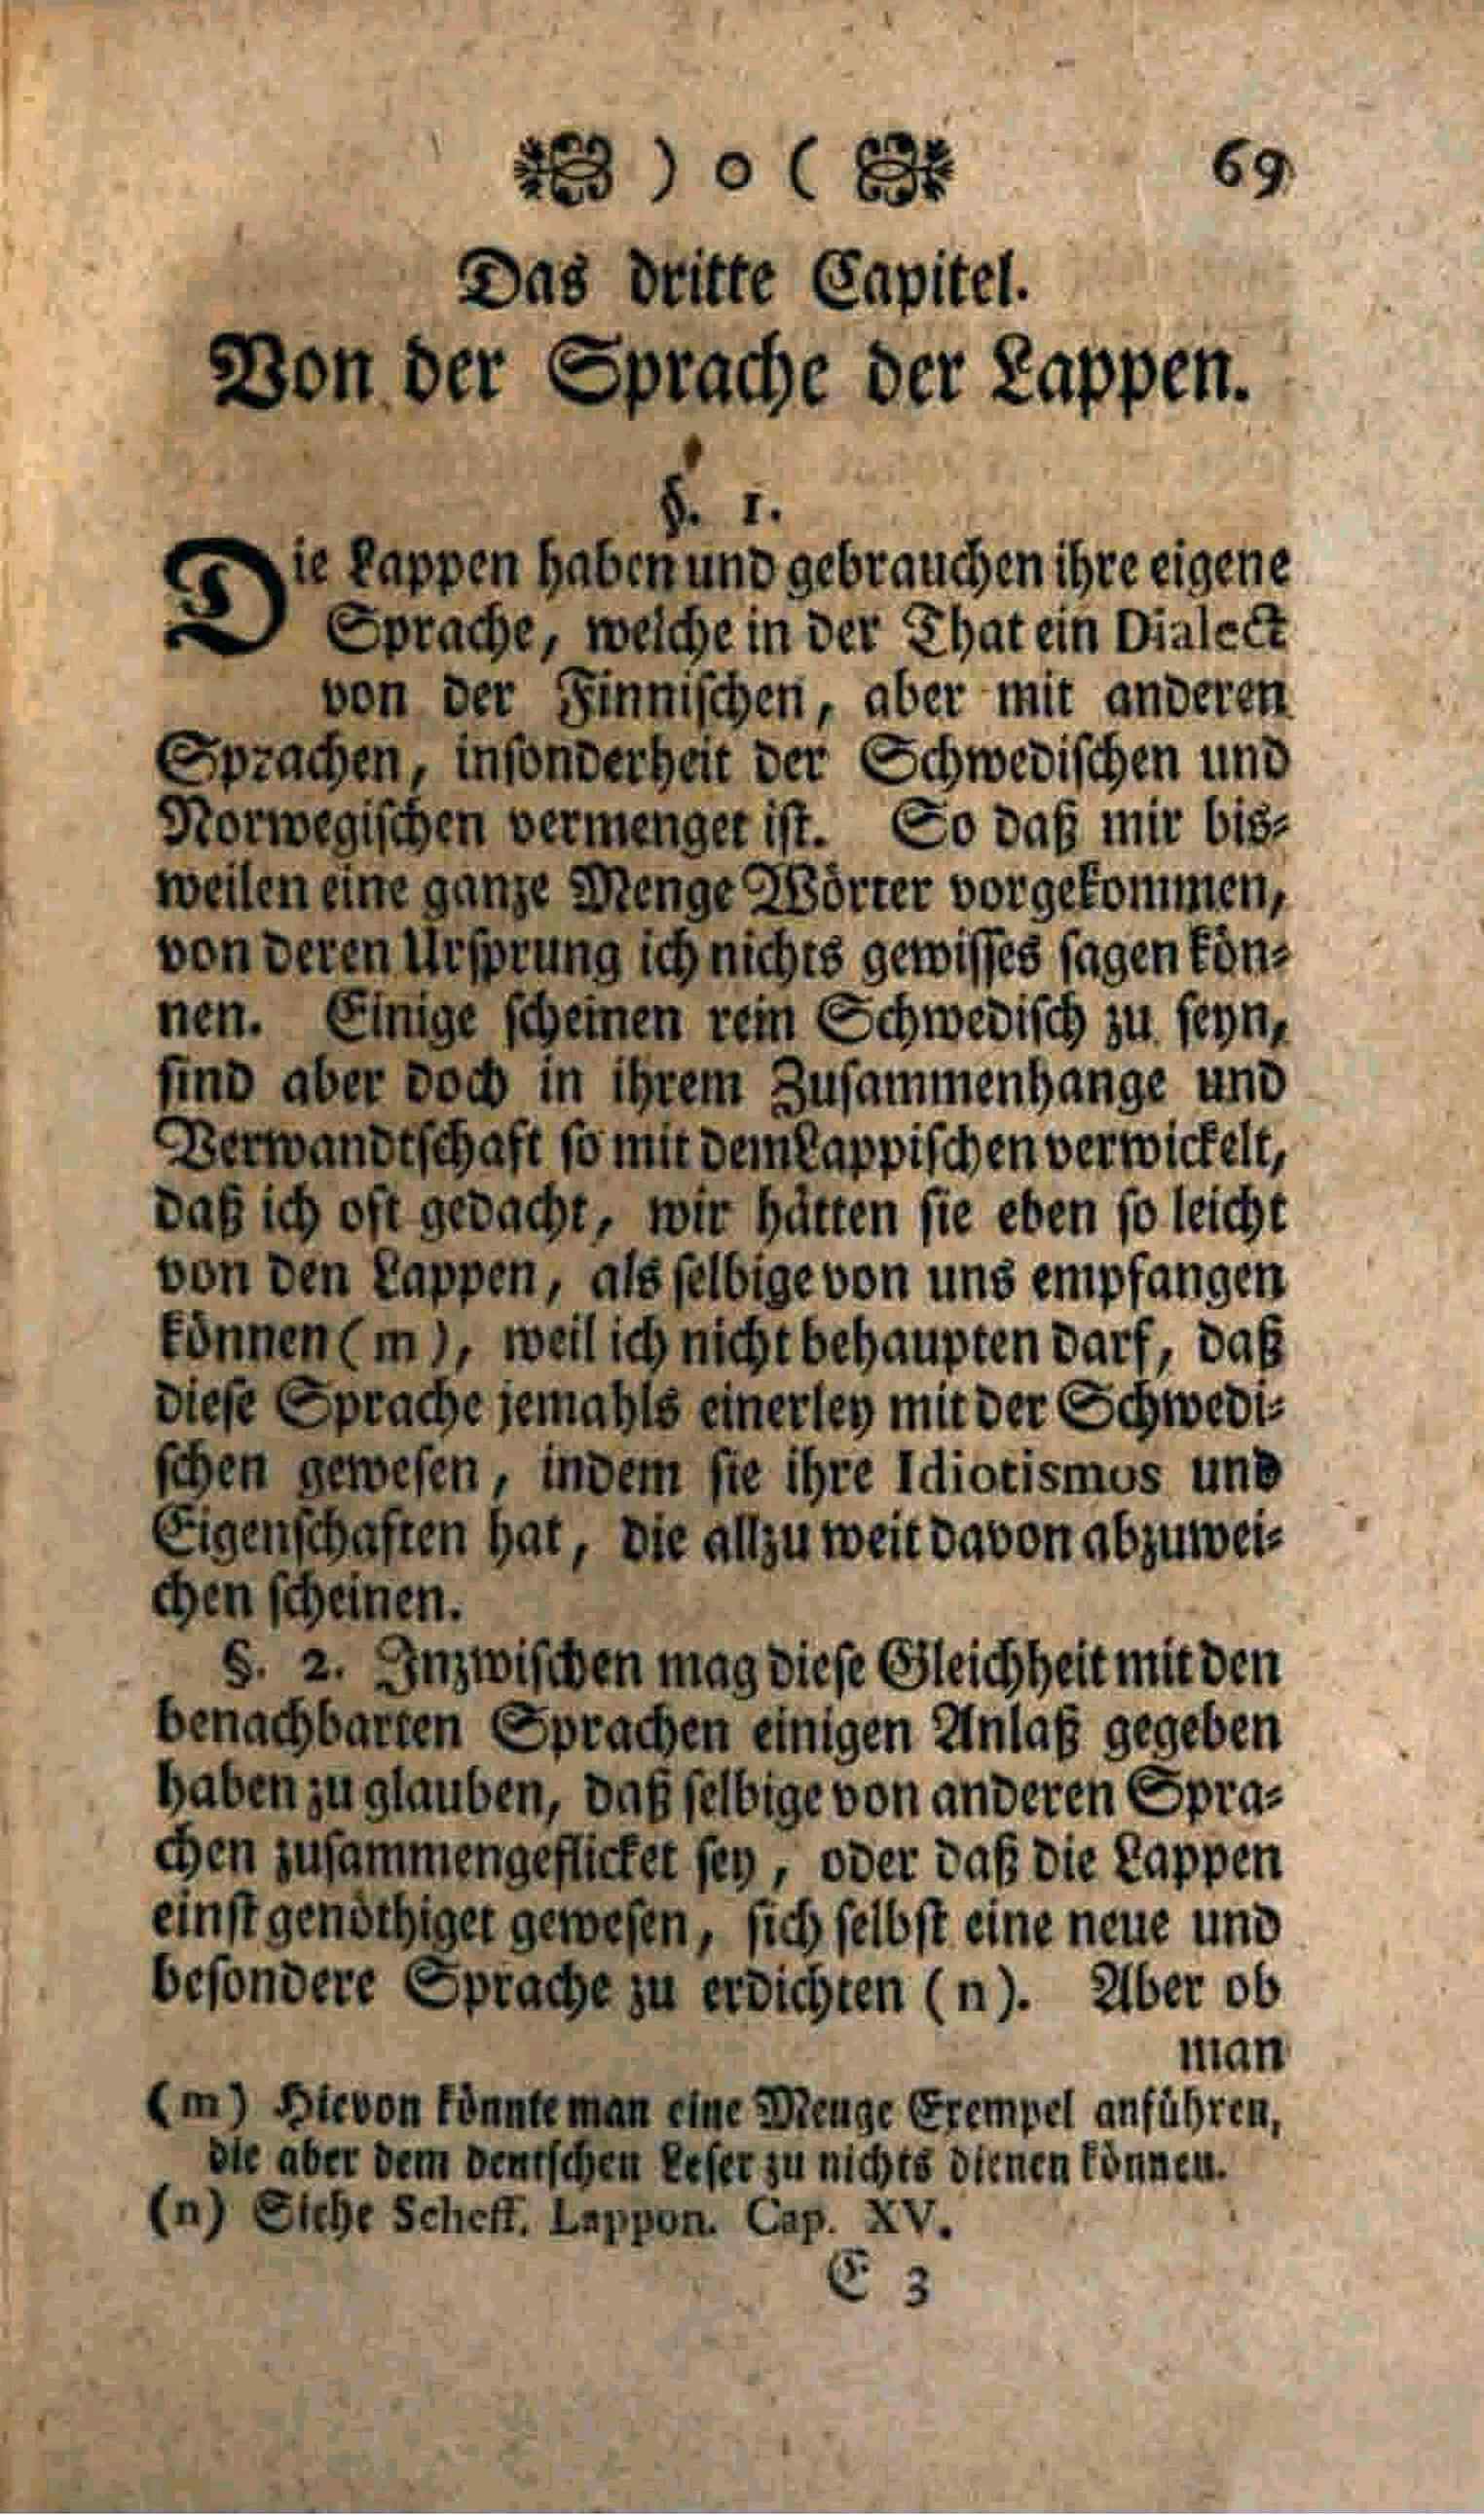 ) o ( 69
Das dritte Capitel.
Von der Sprache der Lappen.
§. 1.
Die Lappen haben und gebrauchen ihre eigene
Sprache, welche in der That ein Dialect
von der Finnischen, aber mit anderen
Sprachen, insonderheit der Schwedischen und
Norwegischen vermenget ist. So daß mir bis⸗
weilen eine ganze Menge Wörter vorgekommen,
von deren Ursprung ich nichts gewisses sagen kön⸗
nen. Einige scheinen rein Schwedisch zu seyn,
sind aber doch in ihrem Zusammenhange und
Verwandtschaft so mit dem Lappischen verwickelt,
daß ich oft gedacht, wir hätten sie eben so leicht
von den Lappen, als selbige von uns empfangen
können (m), weil ich nicht behaupten darf, daß
diese Sprache jemahls einerley mit der Schwedi⸗
schen gewesen, indem sie ihre Idiotismos und
Eigenschaften hat, die allzu weit davon abzuwei⸗
chen scheinen.
§. 2. Inzwischen mag diese Gleichheit mit den
benachbarten Sprachen einigen Anlaß gegeben
haben zu glauben, daß selbige von anderen Spra⸗
chen zusammengeflicket sey, oder daß die Lappen
einst genöthiget gewesen, sich selbst eine neue und
besondere Sprache zu erdichten (n). Aber ob
man
(m) Hievon könnte man eine Menge Exempel anführen,
die aber dem deutschen Leser zu nichts dienen können.
(n) Siehe Scheff. Lappon. Cap. XV.
E 3